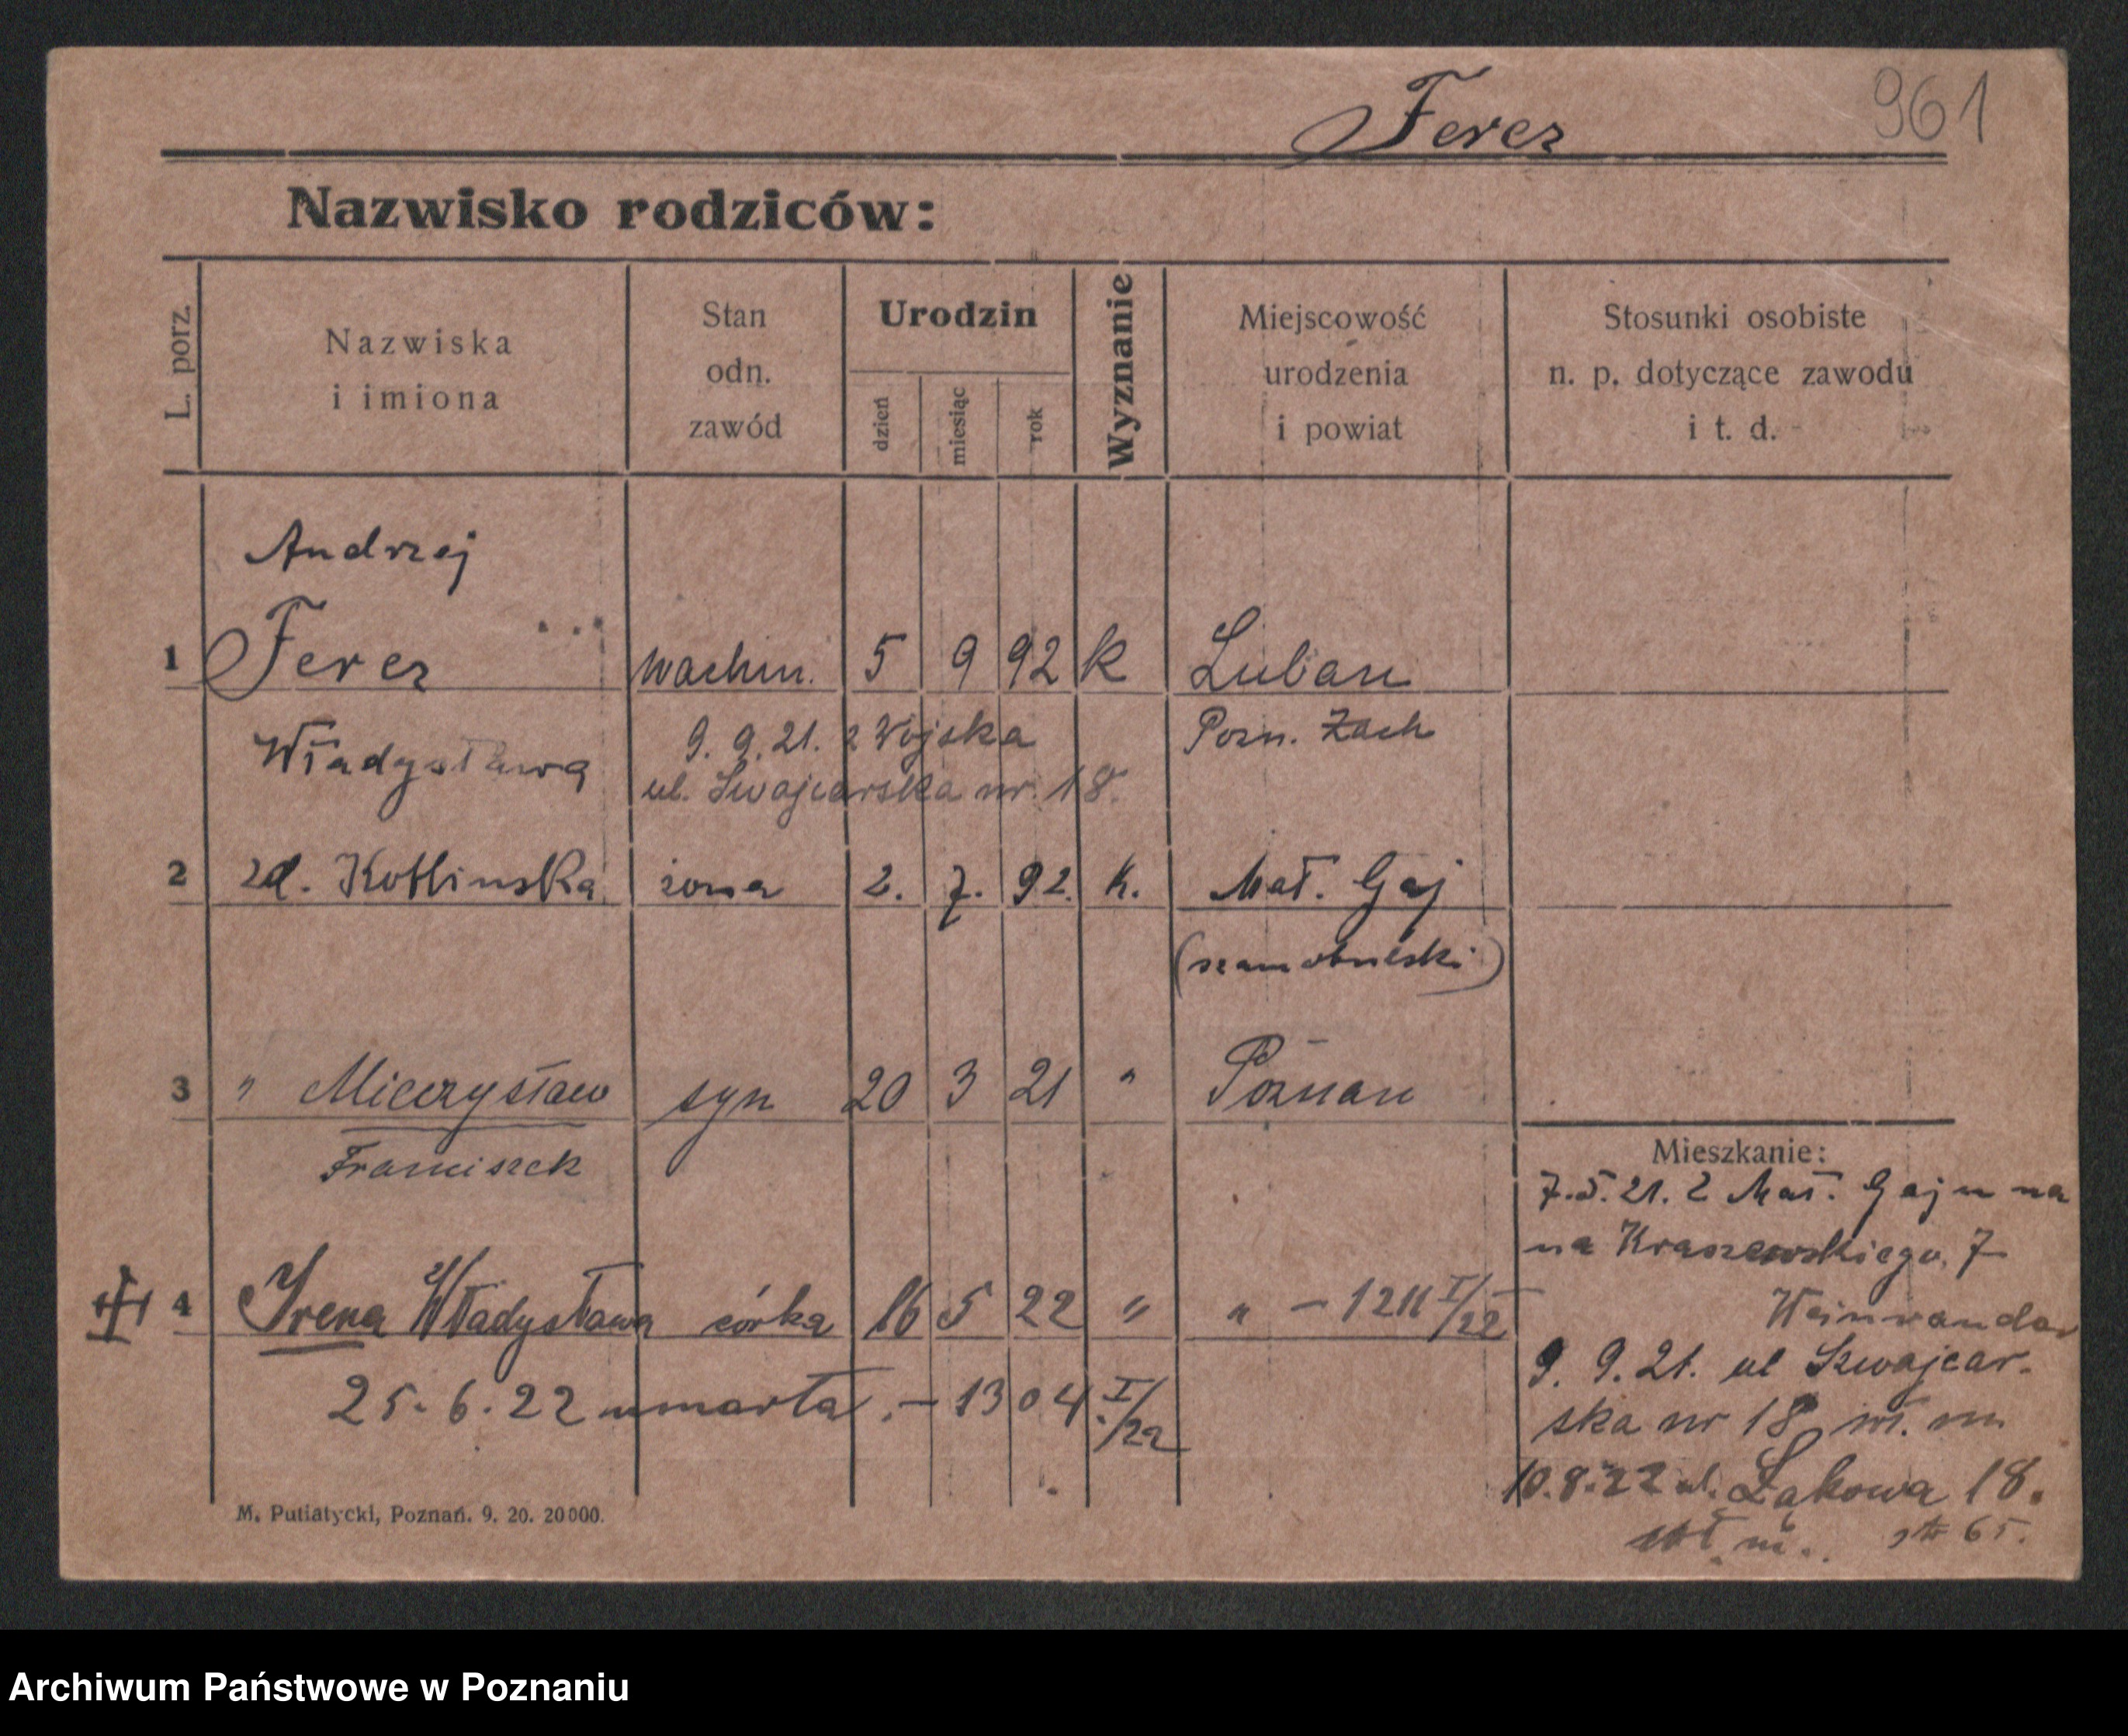 Ferez
961
Nazwisko rodziców:
L. porz.
Nazwiska
i imiona
Stan
odn.
zawód
Urodzin
dzień
miesiąc
rok
Wyznanie
Miejscowość
urodzenia
i powiat
Stosunki osobiste
n. p. dotyczące zawodu
i t. d.
Andrzej
1 Ferez wachm. 5 9 92 k Luban
Władysława 9. 9. 21. z Wojska Pozn. Zach
ul. Szwajcarska nr 18.
2 zd. Kotlinska żona 2. 7. 92. k. Mał. Gaj
(szamotulski)
3 " Mieczysław syn 20 3 21 " Poznan
Franciszek
Mieszkanie:
7. 5. 21. z Mał. Gaju na
na Kraszewskiego. 7
4 Irena Władysława córka 16 5 22 " " - 1211 I/22
9. 9. 21. ul Szwajcar-
25. 6. 22 umarła. - 1304 I/22
ska nr 18 wł. m
10. 8. 22 ul. Łąkowa 18.
wł. m.. 65.
M. Putiatycki, Poznań. 9. 20. 20000.
Archiwum Państwowe w Poznaniu